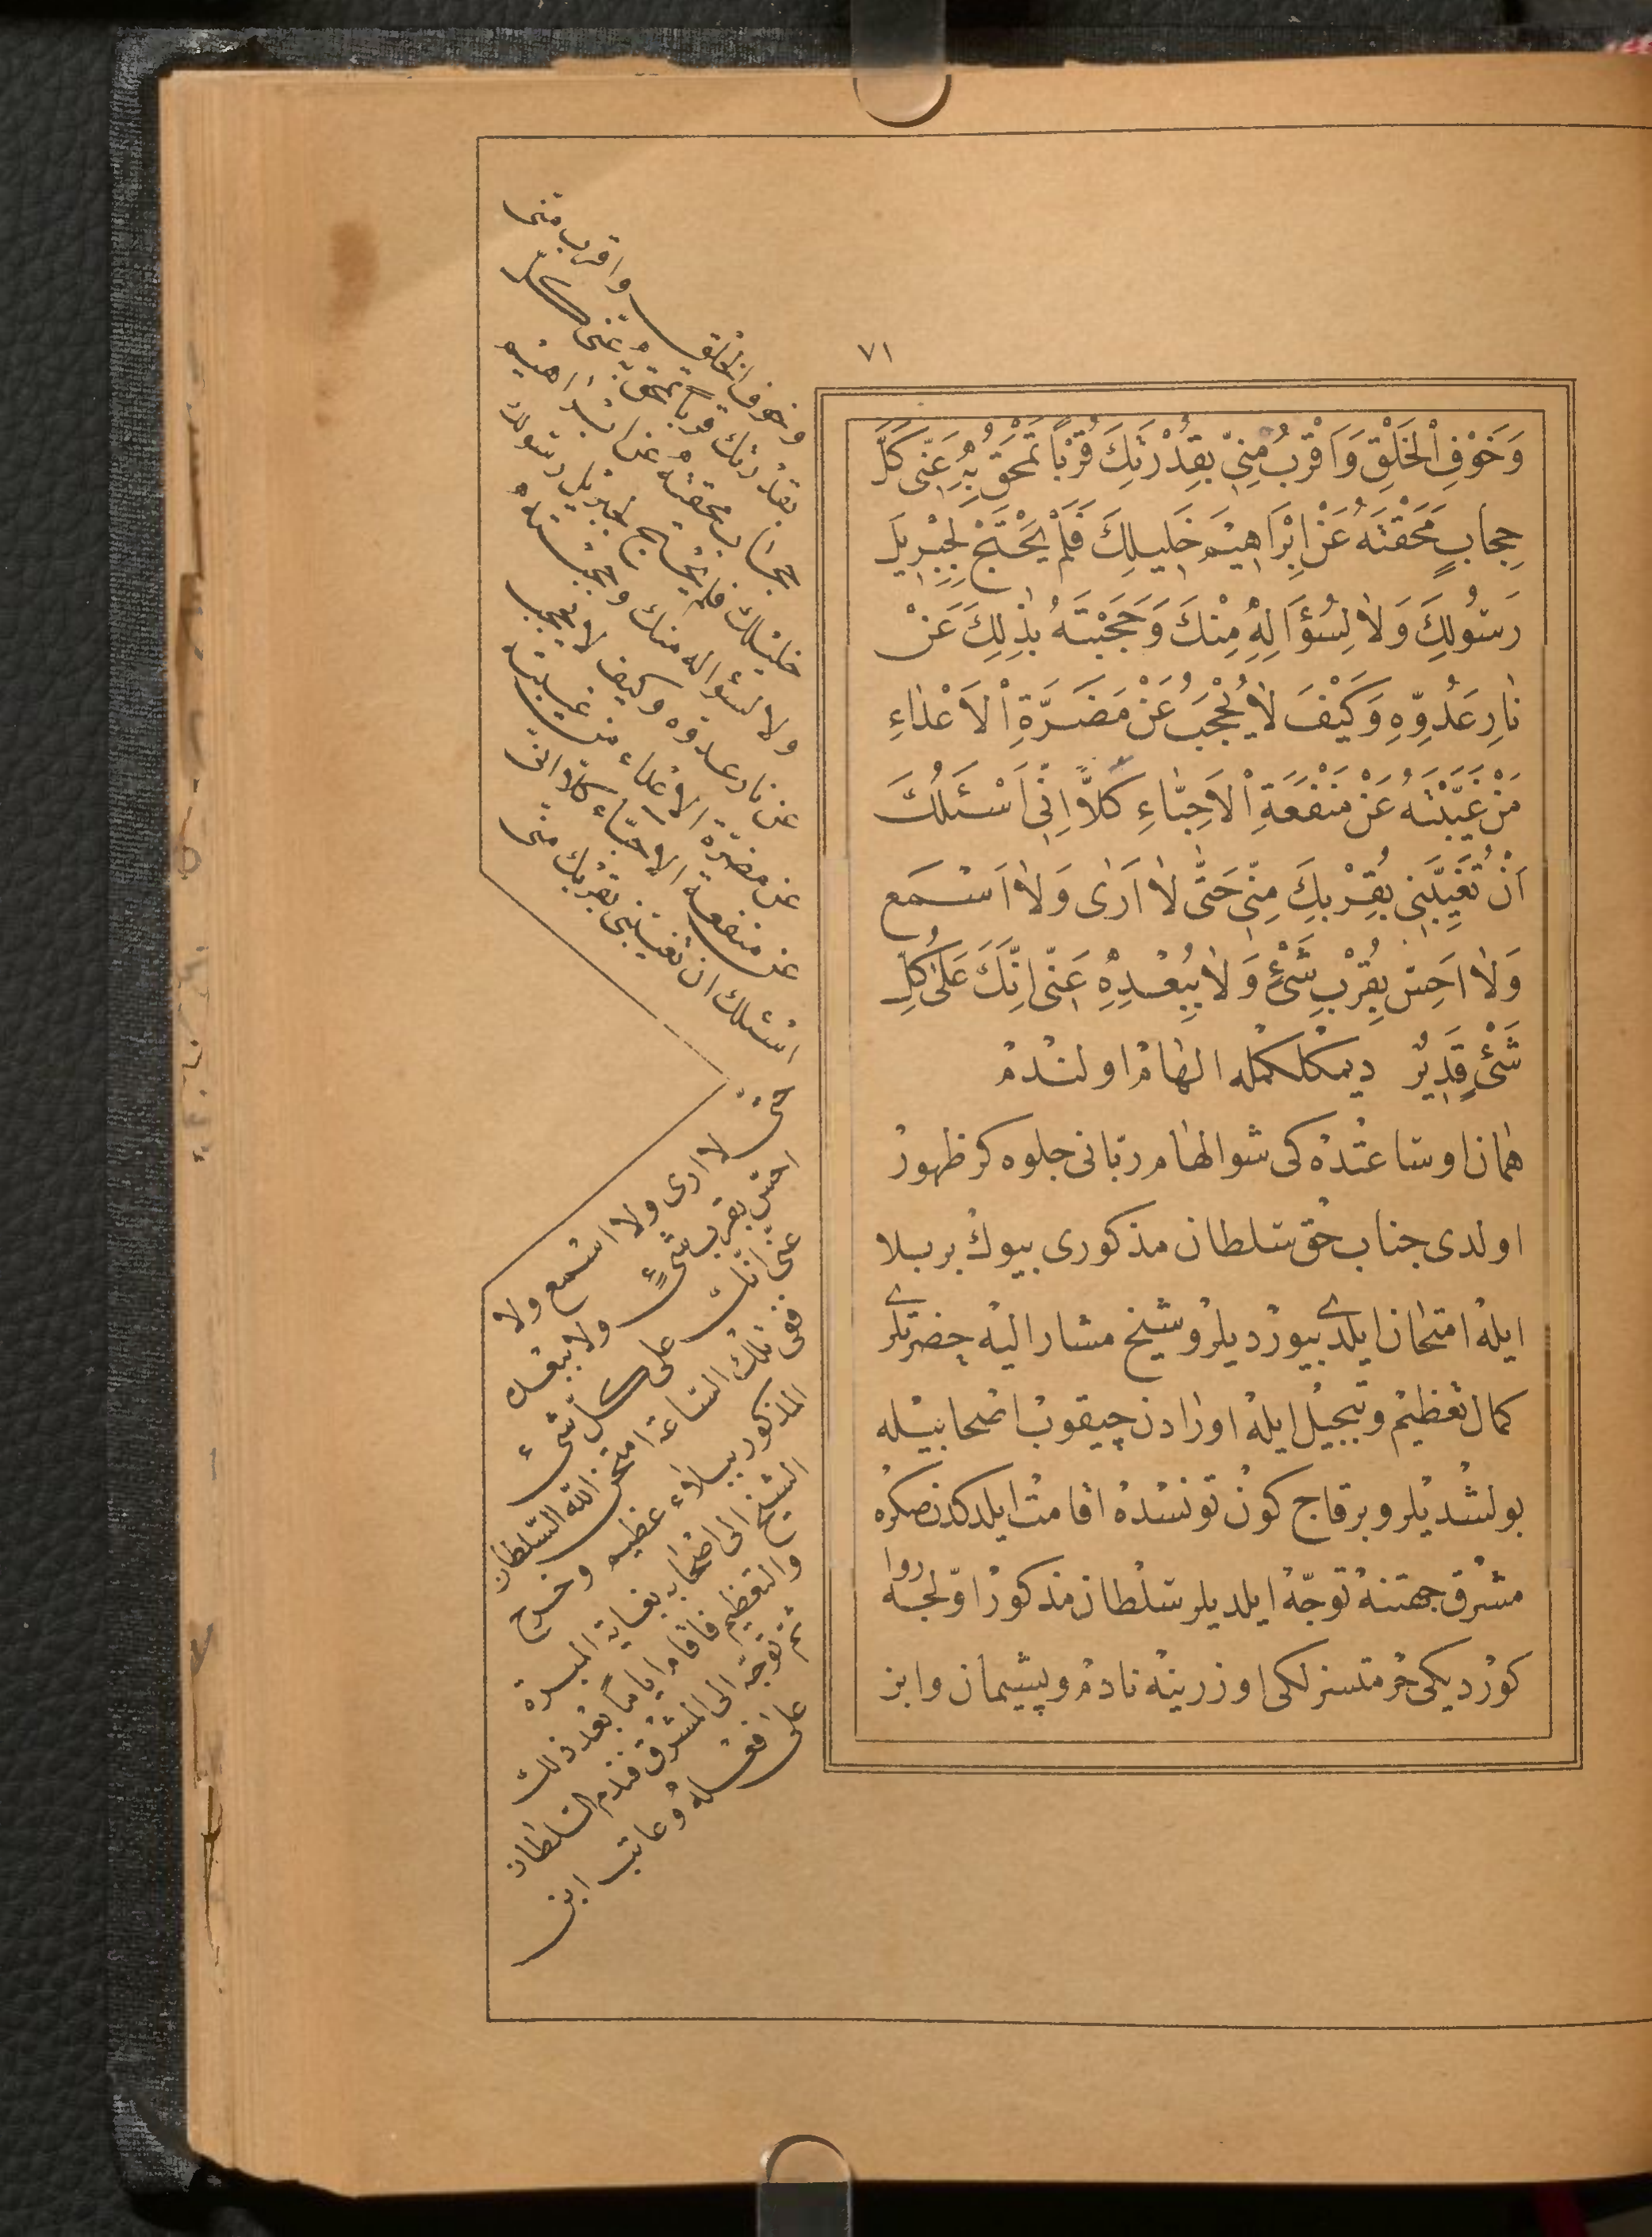 ٧١
وَخَوْفِ الْخَلْقِ وَاقْرُبْ مِنِّي بِقُدْرَتِكَ قُرْبًا تَمْحَقُ بِهِ عَنِّي كُلَّ
حِجَابٍ مَحَقْتَهُ عَنْ اِبْرَاهِيمَ خَلِيلِكَ فَلَمْ يَحْتَجْ لِجِبْرِيلَ
رَسُولِكَ وَلَا لِسُؤَالِهِ مِنْكَ وَحَجَبْتَهُ بِذٰلِكَ عَنْ
نَارِ عَدُوِّهِ وَكَيْفَ لَا يُحْجَبُ عَنْ مَضَرَّةِ الْاَعْدَاءِ
مَنْ غَيَّبْتَهُ عَنْ مَنْفَعَةِ الْاَحِبَّاءِ كَلَّا اِنِّي اَسْئَلُكَ
اَنْ تُغَيِّبَنِي بِقُرْبِكَ مِنِّي حَتَّى لَا اَرٰى وَلَا اَسْمَع
وَلَا اَحِسَّ بِقُرْبِ شَيْءٍ وَلَا بِبُعْدِهِ عَنِّي اِنَّكَ عَلٰى كُلِّ
شَيْءٍ قَدِيرٌ ديمكلكمله الهام اولندم
همان اوساعتده كى شو الهام ربانى جلوه كر ظهور
اولدى جناب حق سلطان مذكورى بيوك بر بلا
ايله امتحان ايلدى بيورديلر و شيخ مشار اليه حضرتلرى
كمال تعظيم و تبجيل ايله اورادن چيقوب اصحابيله
بولشديلر و بر قاج كون تونسده اقامت ايلدكدنصكره
مشرق جهتنه توجه ايلديلر سلطان مذكور اولجه روا
كورديكى حرمتسزلكى اوزرينه نادم و پشيمان و ابن
وخوف الخلق واقرب منى
بقدرتك قربا تمحق به عنى كل
حجاب محقته عن ابراهيم
خليلك فلم يحتج لجبريل رسولك
ولا لسؤاله منك وحجبته
عن نار عدوه وكيف لا يحجب
عن مضرة الاعداء من غيبته
عن منفعة الاحباء كلا انى
اسئلك ان تغيبنى بقربك منى
حتى لا ارى ولا اسمع ولا
احس بقرب شىء ولا ببعده
عنى انك على كل شىء
ففى تلك الساعة امتحن الله السلطان
المذكور ببلاء عظيم وخرج
الشيخ الى اصحابه بغاية المبرة
والتعظيم فاقام اياما بعد ذلك
ثم توجه الى المشرق فندم السلطان
على فعله وعاتب ابن